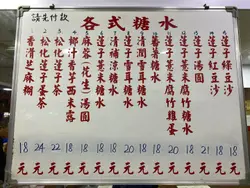 請先付款
各式糖水
蓮子綠豆沙 18元
蓮子紅豆沙 18元
蓮子湯圓 21元
蓮子薏米腐竹雞蛋 20元
蓮子薏米腐竹糖水 18元
番薯糖水
蓮子雪耳糖水 18元
清潤雪耳糖水 18元
清補涼糖水 18元
麻蓉(花生)湯圓 18元
椰汁香芋西米露 18元
松化蓮子茶 22元
松化蓮子蛋茶 24元
香滑芝麻糊 18元